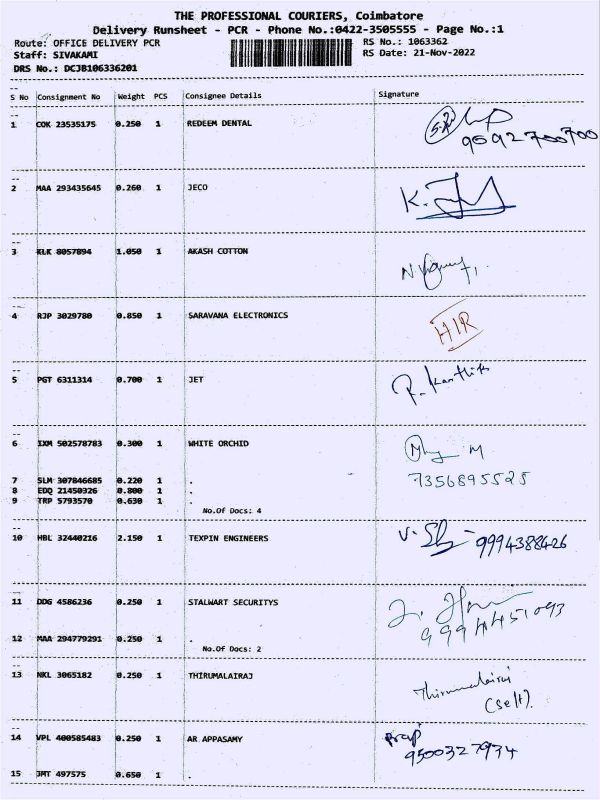 THE PROFESSIONAL COURIERS, Coimbatore
Delivery Runsheet - PCR - Phone No.:0422-3505555 - Page No.:1
Route: OFFICE DELIVERY PCR RS No.: 1063362
Staff: SIVAKAMI RS Date: 21-Nov-2022
DRS No.: DCJB106336201
S No Consignment No Weight PCS Consignee Details Signature
1 COK 23535175 0.250 1 REDEEM DENTAL
9592700700
2 MAA 293435645 0.260 1 JECO
3 KLK 8057894 1.050 1 AKASH COTTON
4 RJP 3029780 0.850 1 SARAVANA ELECTRONICS
HIR
5 PGT 6311314 0.700 1 JET
6 IXM 502578783 0.300 1 WHITE ORCHID
7356895525
7 SLM 307846685 0.220 1 .
8 EDQ 21450326 0.800 1 .
9 TRP 5793570 0.630 1 .
No.Of Docs: 4
10 HBL 32440216 2.150 1 TEXPIN ENGINEERS
9994388426
11 DDG 4586236 0.250 1 STALWART SECURITYS
12 MAA 294779291 0.250 1 .
No.Of Docs: 2
13 NKL 3065182 0.250 1 THIRUMALAIRAJ
Thirumalairaj
(self).
14 VPL 400585483 0.250 1 AR APPASAMY
9500327934
15 JMT 497575 0.650 1 .